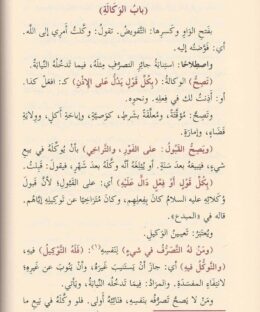 (بابُ الوَكَالَةِ)
بفتحِ الوَاوِ وكَسرِها: التَّفويضُ. تقولُ: وكَلتُ أمرِي إلى اللَّه.
أي: فوَّضتُه إليه.
واصطلاحًا: استنابَةُ جائزِ التصرُّفِ مِثلَه، فيما تَدخلُه النِّيابَةُ.
(تَصِحُّ) الوكالةُ: (بكُلِّ قَولٍ يَدُلُّ على الإذْنِ) كـ: افعَل كذا.
أو: أَذِنتُ لكَ في فِعلِه. ونحوِه.
وتَصِحُّ: مُؤقَّتةً، ومُعلَّقةً بشَرطٍ، كوَصيَّةٍ، وإباحَةِ أَكلٍ، ووِلايَةِ
قَضاءٍ، وإمارَةٍ.
(ويَصِحُّ القَبُولُ: على الفَورِ، والتَّراخِي) بأن يُوكِّلَه في بَيعِ
شَيءٍ، فيَبيعُهُ بعدَ سَنةٍ. أو يُبَلِّغَه أنَّه وكَّلَه بعدَ شَهرٍ، فيقولُ: قَبِلتُ.
(بكُلِّ قَولٍ أو فِعلٍ دَالٍّ علَيْهِ) أي: على القَبُولِ؛ لأنَّ قَبولَ
وُكلائِهِ عليه السلامُ كانَ بِفِعلِهِم، وكان مُتَراخيًا عن تَوكيلِه إيَّاهُم.
قالَه في «المبدع».
ويُعتبَرُ: تَعيينُ الوَكيلِ.
(ومَن لهُ التَّصَرُّفُ في شَيءٍ) لنفسِهِ(١): (فلَهُ التَّوكِيلُ) فيهِ،
(والتَّوكُّلُ فِيهِ) أي: جازَ أنْ يَستَنيبَ غَيرَهُ، وأن يَنوبَ عن غَيرِهِ؛
لانتفاءِ المفسَدَةِ. والمرادُ: فيما تَدخُلُه النِّيابَةُ، ويأتي.
ومَن لا يَصِحُّ تَصرُّفُه بنَفسِهِ، فنائِبُهُ أَولى. فلو وكَّلَهُ في بَيعِ ما